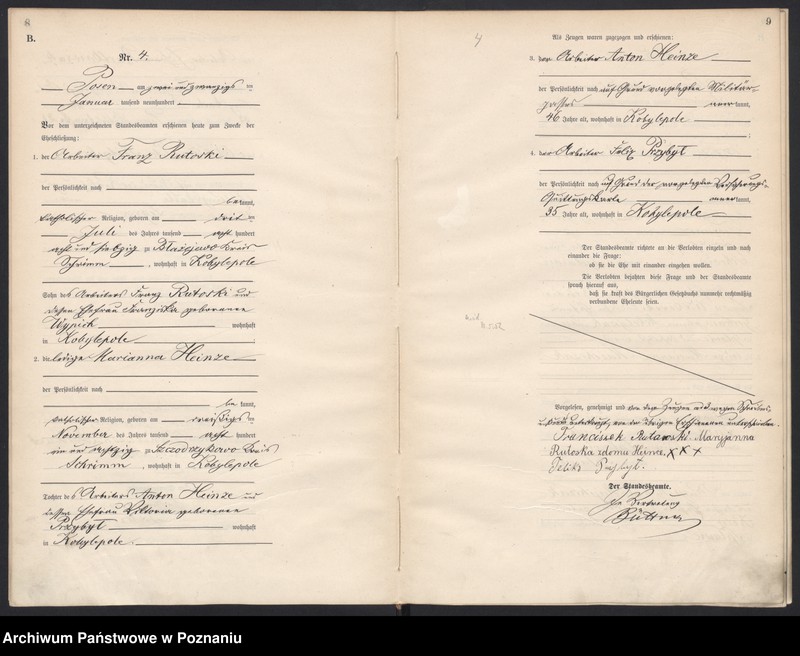 8
B.
Nr. 4.
Posen am zwei und zwanzigsten
Januar tausend neunhundert
Vor dem unterzeichneten Standesbeamten erschienen heute zum Zwecke der
Eheschließung:
1. der Arbeiter Franz Rutoski
der Persönlichkeit nach
be kannt,
katholischer Religion, geboren am dritten
Juli des Jahres tausend acht hundert
acht und siebzig zu Błażejewo Kreis
Schrimm, wohnhaft in Kobylepole
Sohn des Arbeiters Franz Rutoski und
dessen Ehefrau Franziska geborenen
wohnhaft
in Kobylepole
2. die ledige Marianna Heinze
der Persönlichkeit nach
be kannt,
katholischer Religion, geboren am dreißigsten
November des Jahres tausend acht hundert
ein und achtzig zu Szczodrzykowo Kreis
Schrimm, wohnhaft in Kobylepole
Tochter des Arbeiters Anton Heinze und
dessen Ehefrau Viktoria geborenen
Przybyt wohnhaft
in Kobylepole.
9
4
Als Zeugen waren zugezogen und erschienen:
3. der Arbeiter Anton Heinze
der Persönlichkeit nach auf Grund vorgelegten Militär-
passes aner kannt,
46 Jahre alt, wohnhaft in Kobylepole
4. der Arbeiter Felix Przybyt
der Persönlichkeit nach auf Grund der vorgelegten Versicherungs-
Quittungskarte aner kannt,
35 Jahre alt, wohnhaft in Kobylepole
Der Standesbeamte richtete an die Verlobten einzeln und nach
einander die Frage:
ob sie die Ehe mit einander eingehen wollen.
Die Verlobten bejahten diese Frage und der Standesbeamte
sprach hierauf aus,
daß sie kraft des Bürgerlichen Gesetzbuchs nunmehr rechtmäßig
verbundene Eheleute seien.
Vorgelesen, genehmigt und von dem Zeugen wegen Schreibens-
unkunde unterkreuzt, von den übrigen Erschienenen unterschrieben.
Franciszek Rutowski Maryjanna
Rutoska z domu Heinze, x x x
Feliks Przybyt.
Der Standesbeamte.
In Vertretung
Büttner
Archiwum Państwowe w Poznaniu